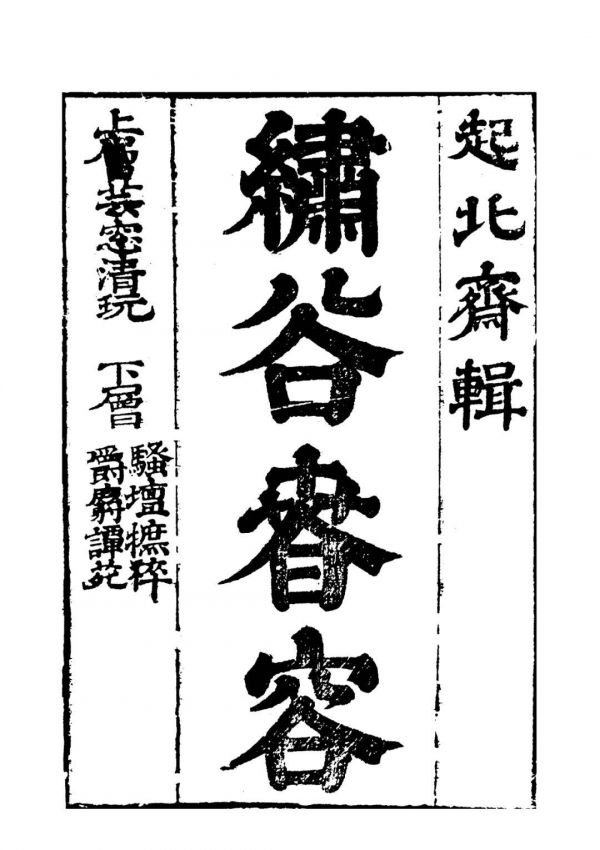 起北齋輯
繡谷春容
上層芸窓清玩 下層
騷壇摭粹
嚼麝譚苑